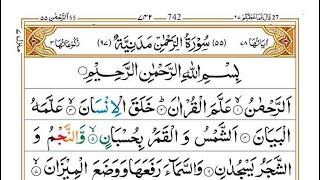 قال فما خطبكم ٢٧ 742 ٧٤٢ الرَّحْمٰن ٥٥
اٰيَاتُهَا ٧٨ (٥٥) سُوْرَةُ الرَّحْمٰنِ مَدَنِيَّةٌ (٩٧) رُكُوْعَاتُهَا ٣
بِسْمِ اللّٰهِ الرَّحْمٰنِ الرَّحِيْمِ
اَلرَّحْمٰنُ ۙ عَلَّمَ الْقُرْاٰنَ ؕ خَلَقَ الْاِنْسَانَ ۙ عَلَّمَهُ
الْبَيَانَ ۞ اَلشَّمْسُ وَ الْقَمَرُ بِحُسْبَانٍ ۪ وَّالنَّجْمُ وَ
الشَّجَرُ يَسْجُدٰنِ ۞ وَالسَّمَآءَ رَفَعَهَا وَوَضَعَ الْمِيْزَانَ ۙ